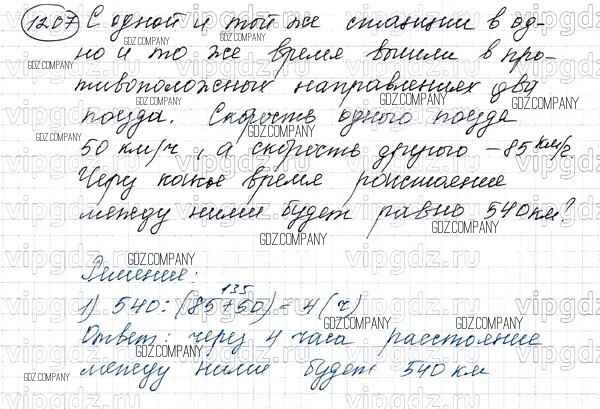 1207 С одной и той же станции в од-
но и то же время вышли в про-
тивоположных направлениях два
поезда. Скорость одного поезда
50 км/ч, а скорость другого - 85 км/ч.
Через какое время расстояние
между ними будет равно 540 км?
Решение:
135
1) 540 : (85+50) = 4 (ч)
Ответ: через 4 часа расстояние
между ними будет 540 км
GDZ.COMPANY
vipgdz.ru